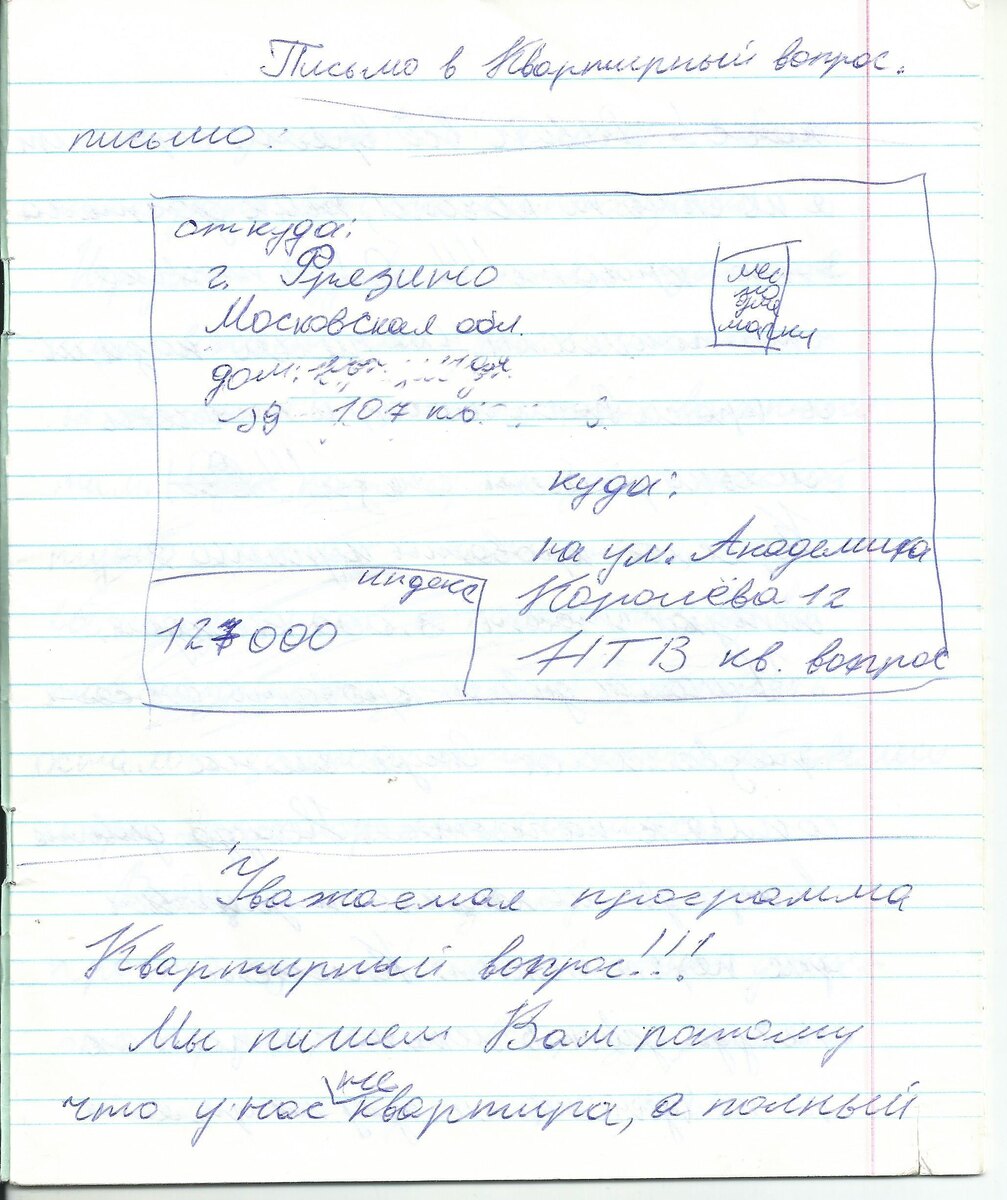 Письмо в Квартирный вопрос.
письмо:
откуда:
г. Фрязино
Московская обл.
дом:
19 107 кв.
мес
то
для
марки
куда:
на ул. Академика
Королёва 12
НТВ кв. вопрос
индекс
127000
Уважаемая программа
Квартирный вопрос!!!
Мы пишем Вам потому
что у нас не квартира, а полный